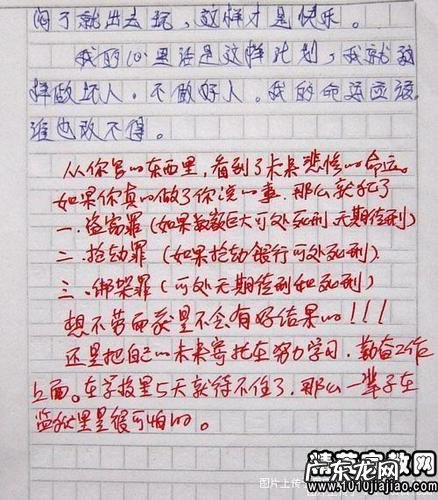 闷了就出去玩，这样才是快乐。
我的心里话是这样计划，我就这
样做坏人，不做好人。我的命运应该
谁也改不得。
从你写的东西里，看到了未来悲惨的命运。
如果你真的做了你说的事，那么就犯了
一.盗窃罪（如果数额巨大可处死刑 无期徒刑）
二.抢劫罪（如果抢劫银行可处死刑）
三.绑架罪（可处无期徒刑和死刑）
想不劳而获是不会有好结果的！！！
还是把自己的未来寄托在努力学习，勤奋工作
上面。在学校里5天就待不住了，那么一辈子在
监狱里是很可怕的。
图片上传
www.1010jiajiao.com